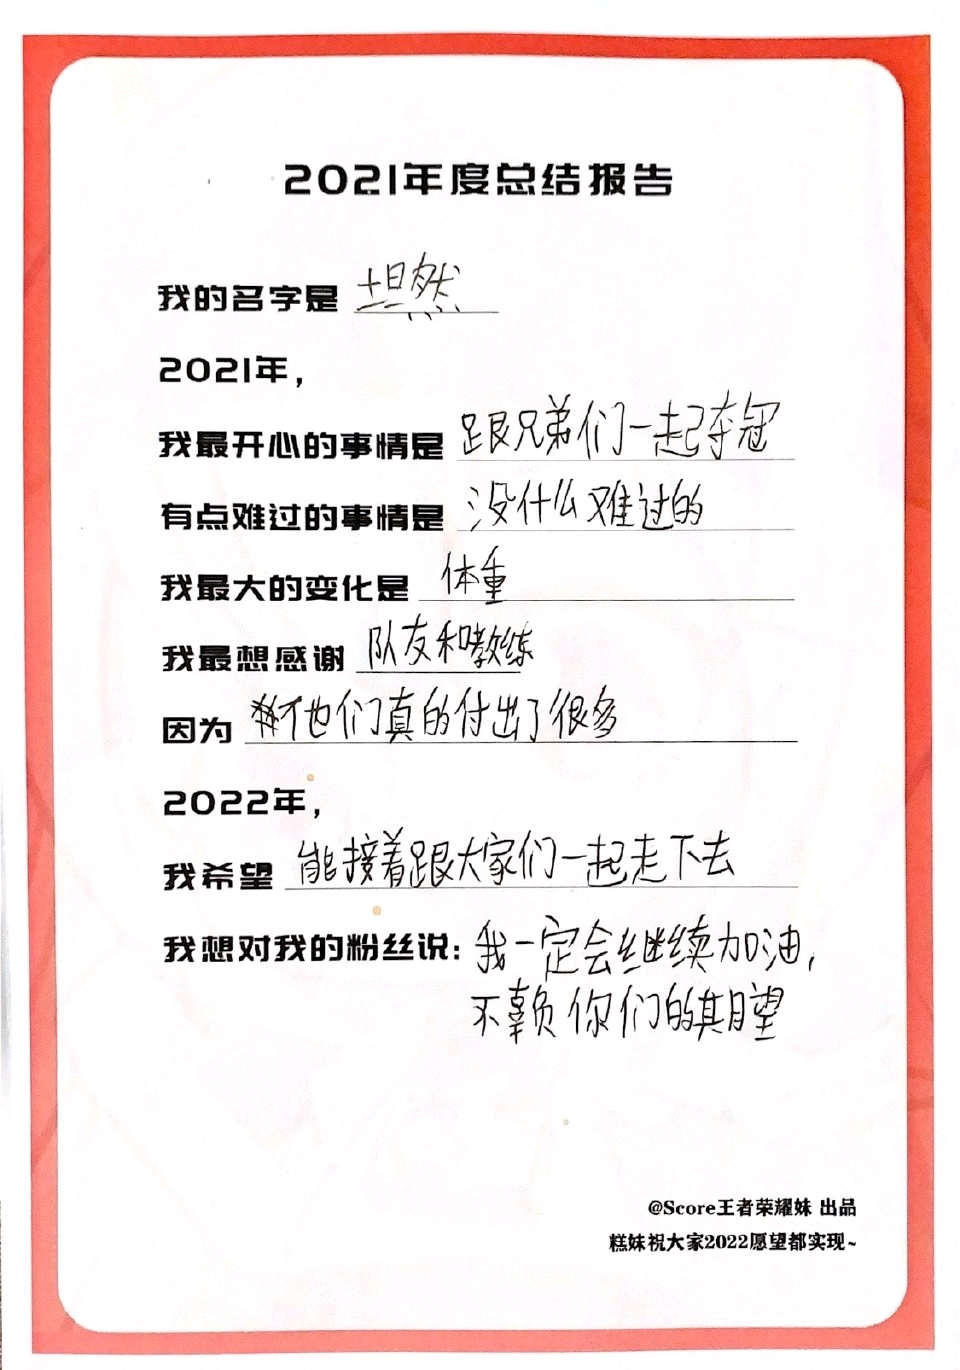 2021年度总结报告
我的名字是 坦然
2021年，
我最开心的事情是 跟兄弟们一起夺冠
有点难过的事情是 没什么难过的
我最大的变化是 体重
我最想感谢 队友和教练
因为 他们真的付出了很多
2022年，
我希望 能接着跟大家们一起走下去
我想对我的粉丝说：我一定会继续加油，
不辜负你们的期望
@Score王者荣耀妹 出品
糕妹祝大家2022愿望都实现~